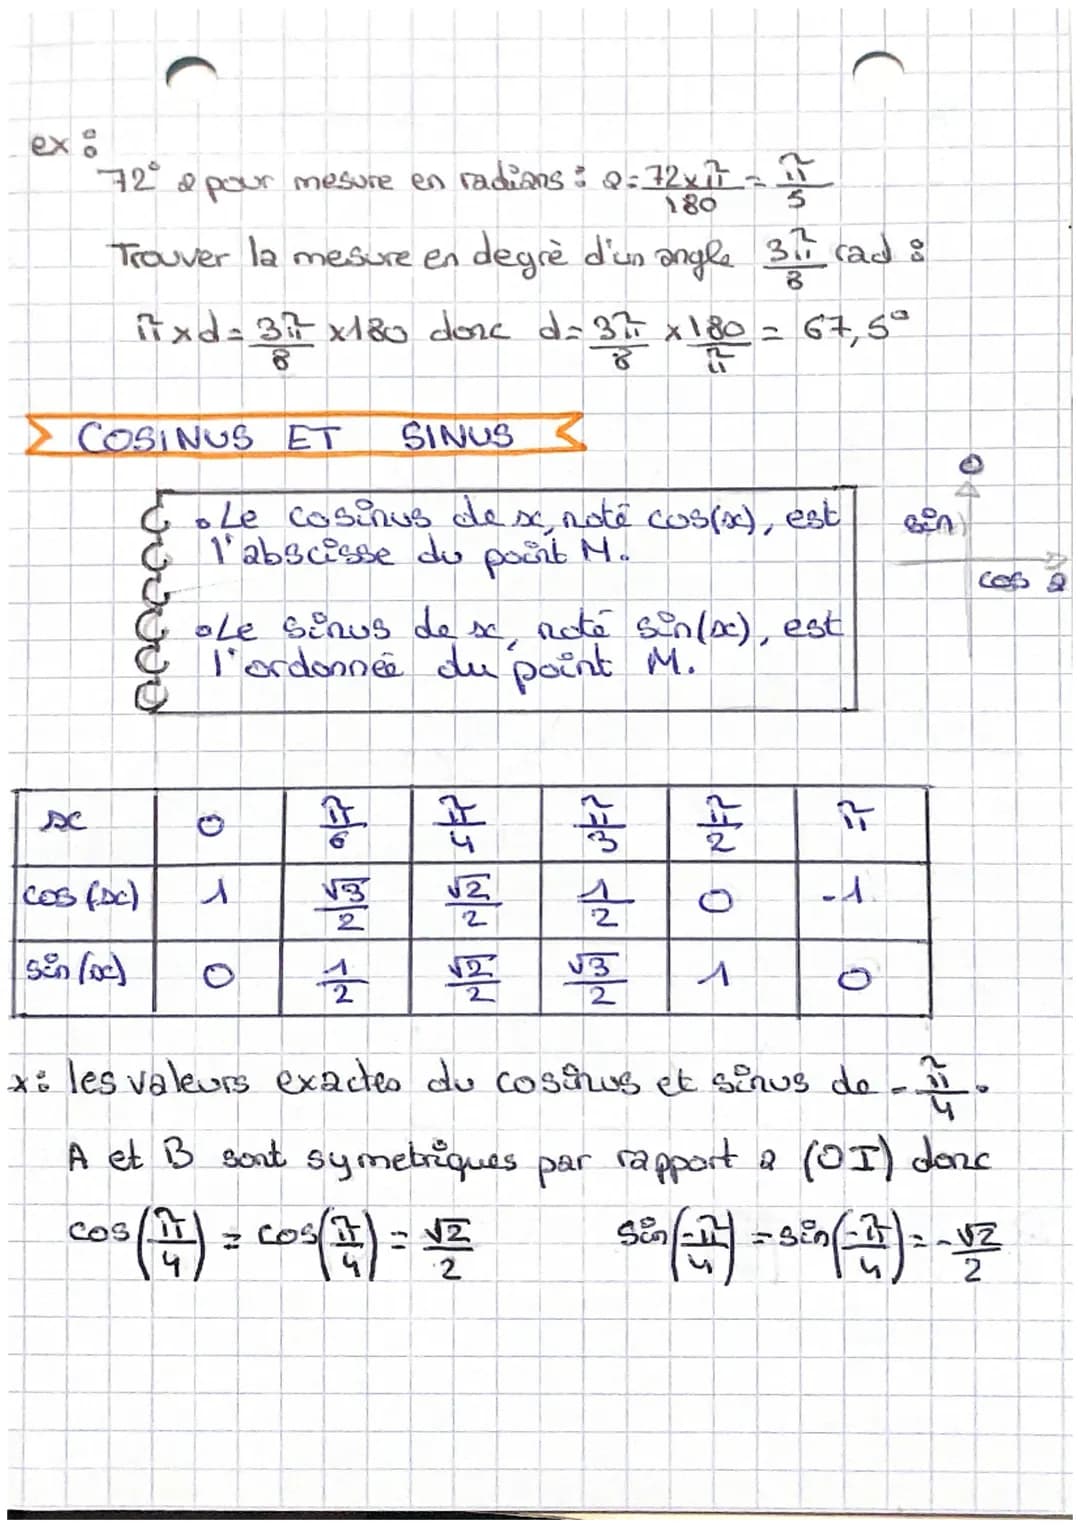 ex :
72° a pour mesure en radians : a = 72×π/180 = π/5
Trouver la mesure en degrè d'un angle 3π/8 rad :
π × d = 3π/8 × 180 donc d = 3π/8 × 180/π = 67,5°
COSINUS ET SINUS
• Le cosinus de x, noté cos(x), est
l'abscisse du point M.
• Le sinus de x, noté sin(x), est
l'ordonnée du point M.
sin
cos
x 0 π/6 π/4 π/3 π/2 π
cos (x) 1 √3/2 √2/2 1/2 0 -1
sin (x) 0 1/2 √2/2 √3/2 1 0
x : les valeurs exactes du cosinus et sinus de -π/4.
A et B sont symetriques par rapport a (OI) donc
cos(π/4) = cos(π/4) = √2/2 sin(-π/4) = sin(-π/4) = -√2/2